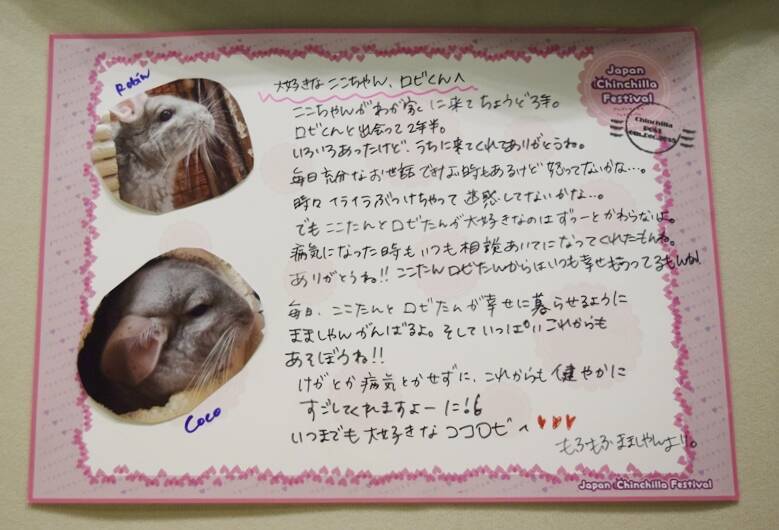 Robin
Coco
Japan
Chinchilla
Festival
Chinchilla
Post
大好きなここちゃん、ロビくんへ
ここちゃんがわが家に来てちょうど3年。
ロビくんと出会って2年半。
いろいろあったけど、うちに来てくれてありがとうね。
毎日充分なお世話できない時もあるけど怒ってないかな…。
時々イライラぶつけちゃって迷惑してないかな…。
でもここたんとロビたんが大好きなのはずぅーとかわらないよ。
病気になった時もいつも相談あいてになってくれたもんね。
ありがとうね!! ここたんロビたんからはいつも幸せもらってるもんね
毎日、ここたんとロビたんが幸せに暮らせるように
まましゃんがんばるよ。そしていっぱいこれからも
あそぼうね!!
けがとか病気とかせずに、これからも健やかに
すごしてくれますよーに!
いつまでも大好きなココロビへ
もふもふまましゃんより。
Japan Chinchilla Festival